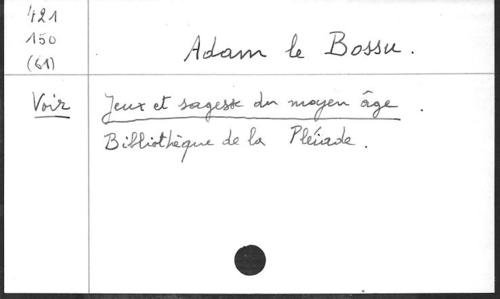 421
150
(61)
Adam le Bossu.
Voir
Jeux et sagesse du moyen âge.
Bibliothèque de la Pléiade.